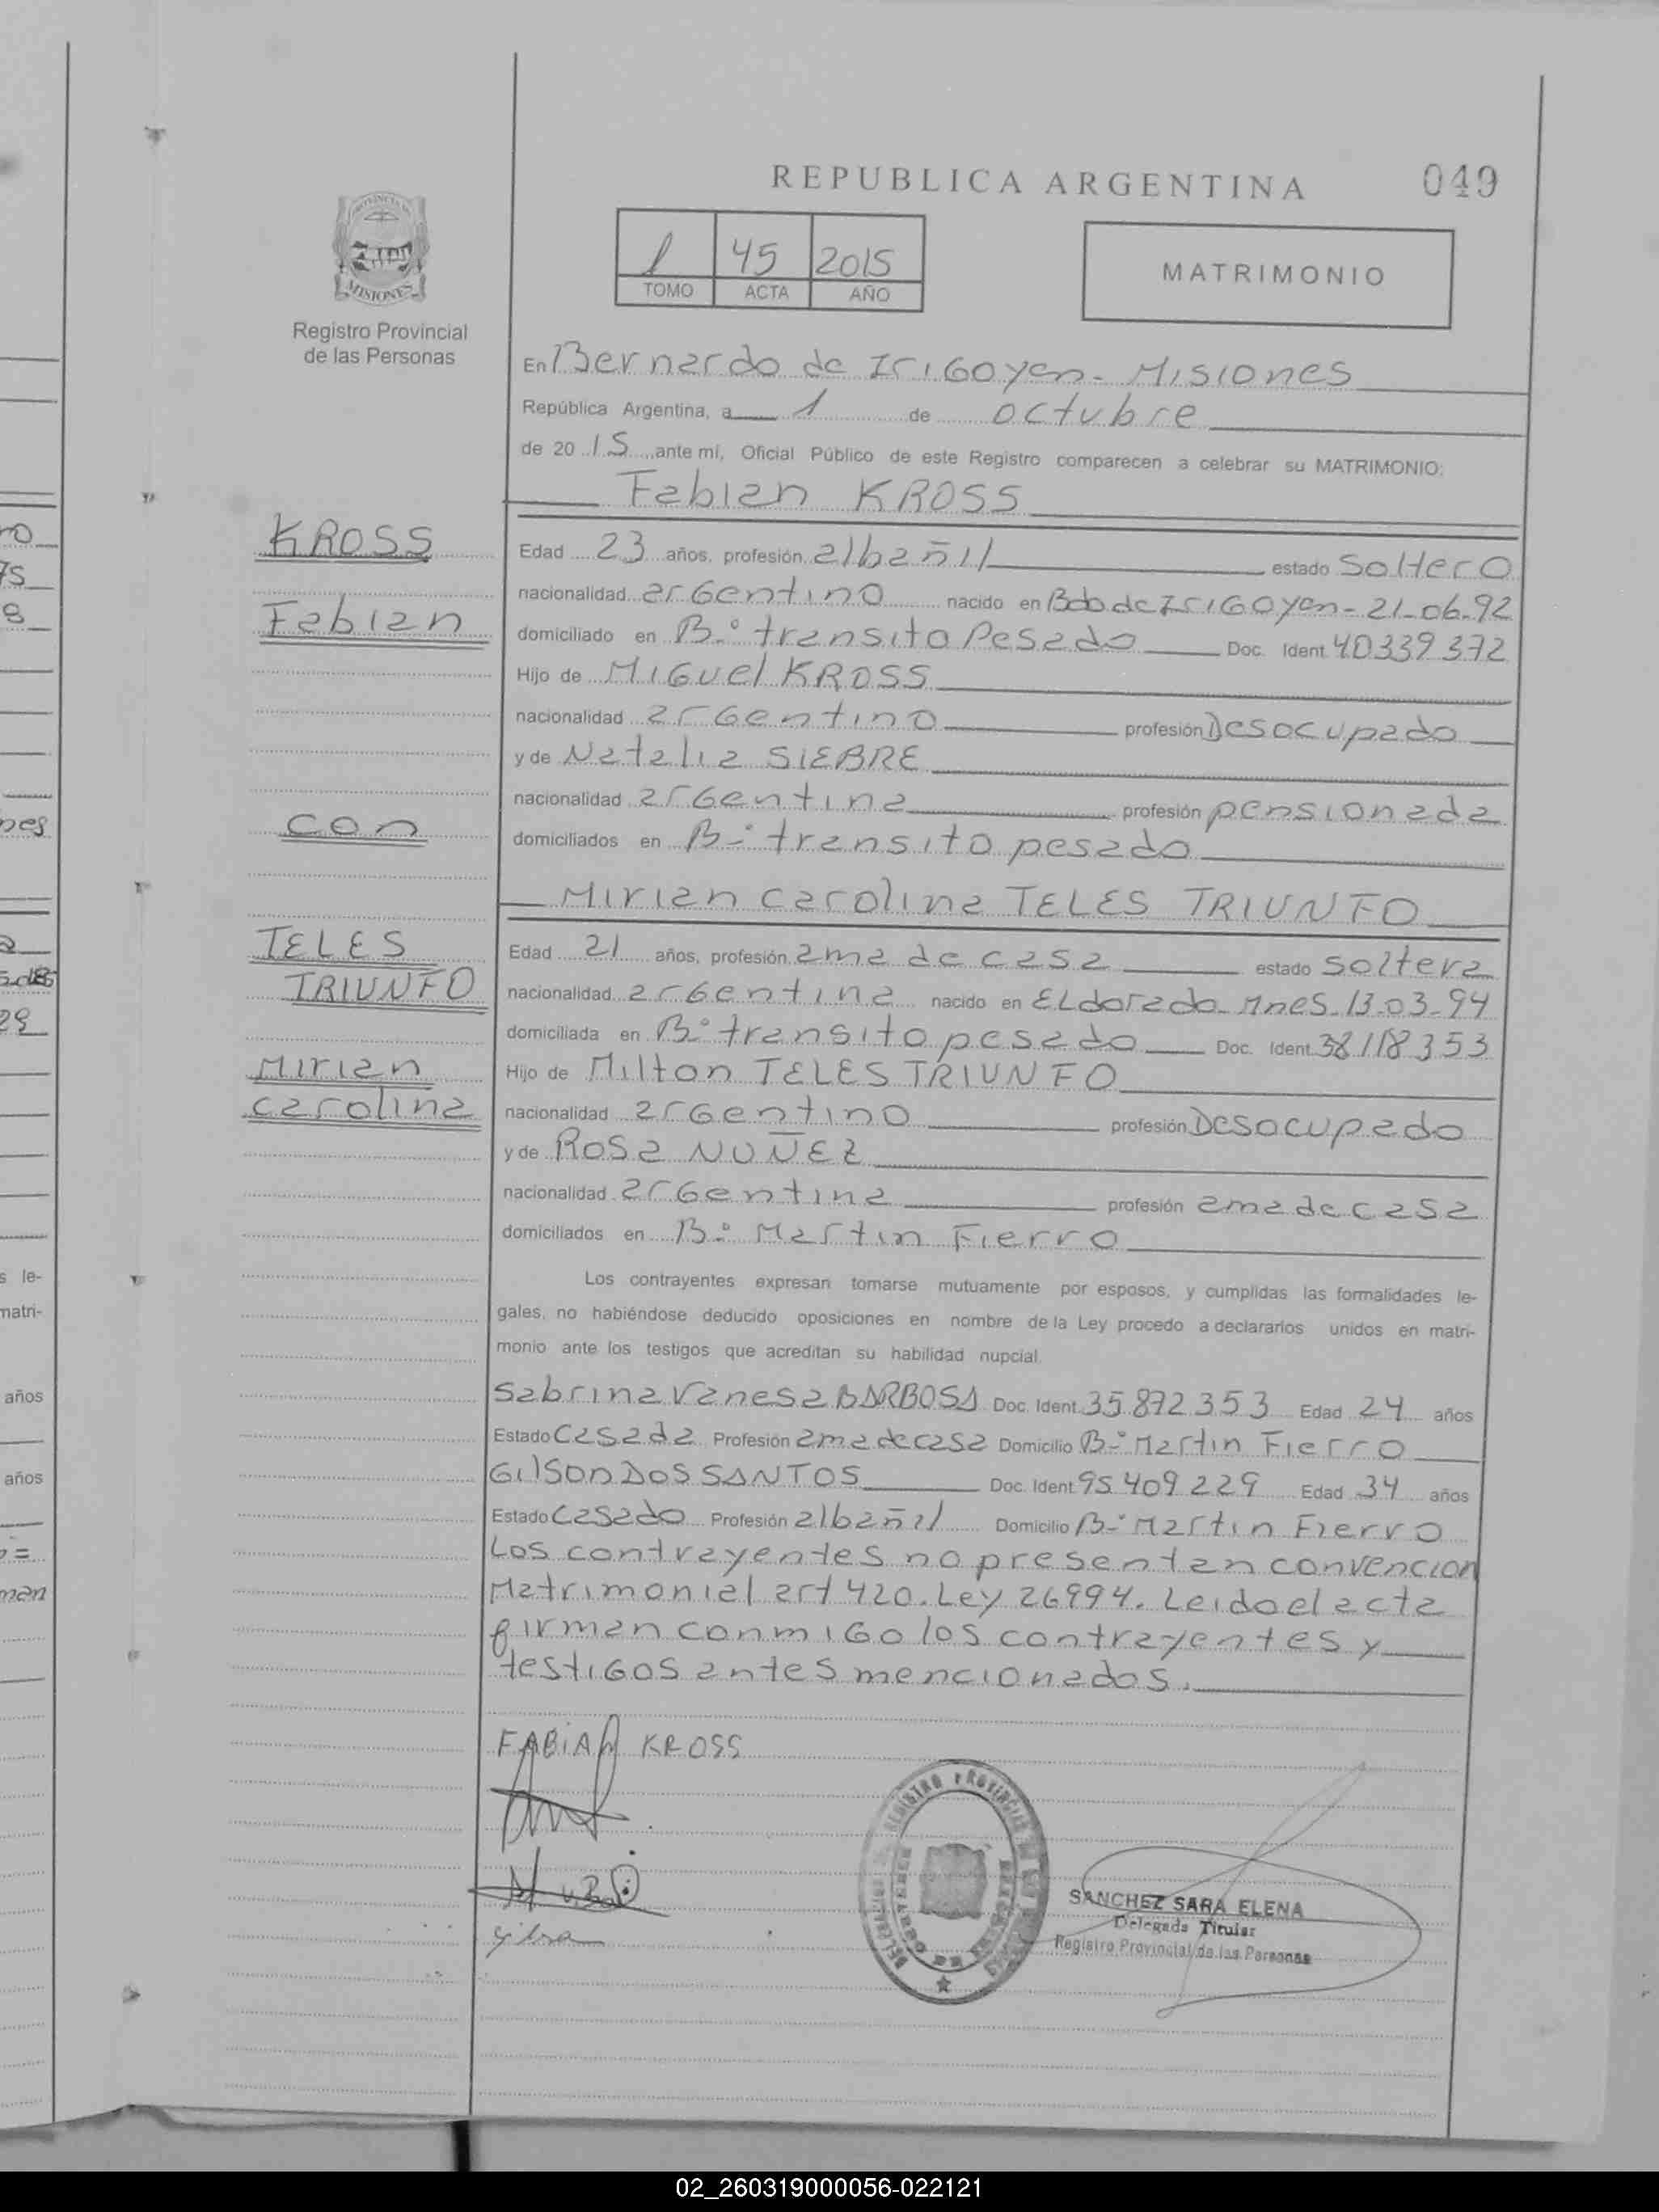 REPUBLICA ARGENTINA
049
PROVINCIA DE
MISIONES
Registro Provincial
de las Personas
1 45 2015
TOMO ACTA AÑO
MATRIMONIO
En Bernardo de IriGoyen - Misiones
República Argentina, a 1 de octubre
de 20 15 ante mí, Oficial Público de este Registro comparecen a celebrar su MATRIMONIO:
Fabian KROSS
KROSS
Fabian
con
TELES
TRIUNFO
Mirian
carolina
Edad 23 años, profesión albañil estado soltero
nacionalidad arGentino nacido en Bdo de IriGoyen - 21-06-92
domiciliado en B.º transito Pesado Doc. Ident. 40339372
Hijo de MiGuel KROSS
nacionalidad arGentino profesión Desocupado
y de Natalia SIEBRE
nacionalidad arGentina profesión pensionada
domiciliados en B.º transito pesado
Mirian carolina TELES TRIUNFO
Edad 21 años, profesión ama de casa estado soltera
nacionalidad arGentina nacido en ELdorado Mnes. 13-03-94
domiciliada en B.º transito pesado Doc. Ident. 38118353
Hijo de Milton TELES TRIUNFO
nacionalidad arGentino profesión Desocupado
y de Rosa NUÑEZ
nacionalidad arGentina profesión ama de casa
domiciliados en B.º Martin Fierro
Los contrayentes expresan tomarse mutuamente por esposos, y cumplidas las formalidades le-
gales, no habiéndose deducido oposiciones en nombre de la Ley procedo a declararlos unidos en matri-
monio ante los testigos que acreditan su habilidad nupcial.
Sabrina Vanesa BARBOSA Doc. Ident. 35.872.353 Edad 24 años
Estado casada Profesión ama de casa Domicilio B.º Martin Fierro
Gilson DOS SANTOS Doc. Ident. 95.409.229 Edad 34 años
Estado casado Profesión albañil Domicilio B.º Martin Fierro
Los contrayentes no presentan convencion
Matrimonial art 420. Ley 26994. Leido el acta
firman conmiGo los contrayentes y
testiGos antes mencionados.
FABiAN KROSS
SANCHEZ SARA ELENA
Delegada Titular
Registro Provincial de las Personas
02_260319000056-022121